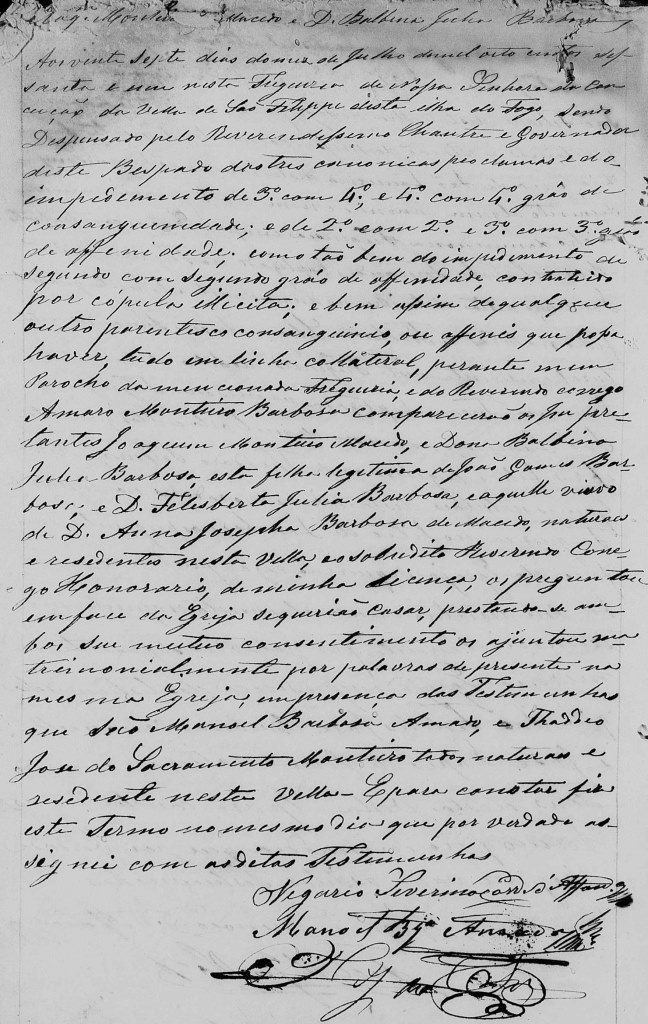 Joaq. Monteiro Macedo e D. Balbina Julia Barbosa
Aos vinte septe dias do mez de Julho de mil oito centos ses-
senta e um nesta Freguezia de Nossa Senhora da Con-
ceição da Villa de São Filippe desta ilha do Fogo, sendo
Dispensado pelo Reverendissimo Chantre e Governador
deste Bispado dos tres canonicas proclamas e do
impedemento de 3º. com 4º, e 4º. com 4º. gráo de
consanguenidade; e de 2º. com 2º. e 3º com 3º. gráo
de affenidade; como tão bem do impedimento de
segundo com segundo gráo de affinidade, contrahido
por cópula illicita; e bem assim de qualquer
outro parentesco consanguineo, ou affenes que possa
haver, tudo em linha collateral, perante mim
Parocho da mencionada Freguezia, e do Reverendo conego
Amaro Monteiro Barbosa comparecerão os Im pre-
tantes Joaquim Monteiro Macedo, e Dona Balbina
Julia Barbosa, esta filha legitima de João Gomes Bar-
bosa, e D. Felisberta Julia Barbosa, e aquelle viuvo
de D. Anna Josepha Barbosa de Macedo, naturaes
e resedentes nesta Villa, e o sobredito Reverendo Cone-
go Honorario, de minha licença, os preguntou
em face da Egreja se querião casar, prestando-se am-
bos seu mutuo consentimento os ajuntou ma-
treimonialmente por palavras de presente na
mesma Egreja, em presença das Testemunhas
que são Manoel Barbosa Amado, e Thaddeo
Jose do Sacramento Monteiro todos naturaes e
resedente nesta Villa - E para constar fiz
este Termo no mesmo dia que por verdade as-
signei com as ditas Testemunhas
Vegario Severino
Manoel Bza. Amado